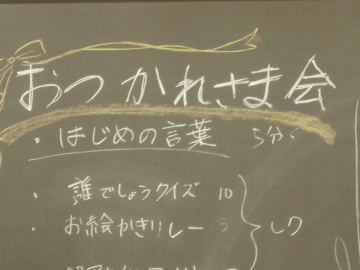 おつかれさま会
・はじめの言葉 5分
・誰でしょうクイズ 10
・お絵かきリレー 5